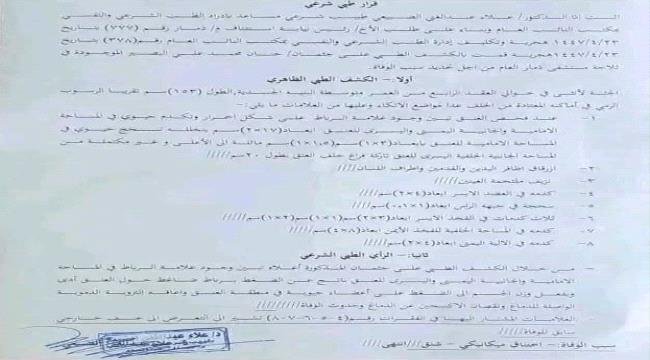 قرار طبي شرعي
أثبت أنا الدكتور/ علاء عبدالغني الصبيعي طبيب شرعي مساعد بإدارة الطب الشرعي والفني
بمكتب النائب العام وبناء على طلب الأخ/ رئيس نيابة استئناف م/ ذمار رقم (٧٧٧) بتاريخ
١٤٤٧/٤/٢٣ هجرية وتكليف إدارة الطب الشرعي والفني بمكتب النائب العام رقم (٣٧٨) بتاريخ
١٤٤٧/٤/٢٣ هجرية قمت بالكشف الطبي على جثمان/ حنان محمد علي المصير الموجودة في
ثلاجة مستشفى ذمار العام من أجل تحديد سبب الوفاة.
أولا:- الكشف الطبي الظاهري
الجثة لأنثى في حوالي العقد الرابع من العمر متوسطة البنية الجسدية الطول (١٥٣)سم تقريبا الرسوب
الرمي في أماكنه المعتادة من الخلف عدا مواضع الاتكاء وعليها من العلامات ما يلي:-
١- عند فحص العنق تبين وجود علامة الرباط على شكل احمرار وتكدم حيوي في المساحة
الامامية والجانبية اليمنى واليسرى للعنق ابعاد(١٧×٢)سم يتخلله تسحج حيوي في
المساحة الامامية للعنق بابعاد(٣×١)سم (١,٥×١)سم مائلة الى الأعلى و غير مكتملة من
المساحة الجانبية الخلفية اليسرى للعنق تاركة فراغ خلف العنق بطول ٢٠سم////
٢- ازرقاق اظافر اليدين والقدمين واطراف اللسان////
٣- نزيف ملتحمة العينين/////
٤- كدمة في العضد الايسر ابعاد(٤×٢)سم////
٥- سحجة في جبهة الراس ابعاد(١×٠,١)سم////
٦- ثلاث كدمات في الفخذ الايسر ابعاد(٣×٢)سم(١×١)سم(٢×١)سم////
٧- كدمة في المساحة الخلفية للفخذ الأيمن ابعاد(٨×٤)سم////
٨- كدمة في الالية اليمين ابعاد(٤×٢)سم////
ثانيا:- الرأي الطبي الشرعي
- من خلال الكشف الطبي على جثمان المذكورة أعلاه تبين وجود علامة الرباط في المساحة
الامامية والجانبية اليمنى واليسرى للعنق ناتج عن الضغط برباط ضاغط حول العنق أدى
وبفعل وزن الجسم الى الضغط على أعضاء حيوية في منطقة العنق واعاقه التروية الدموية
الواصلة للدماغ ونقصان الاكسجين عن الدماغ وحدوث الوفاة///////
- العلامات المشار اليها في الفقرات رقم(٤-٥-٦-٧-٨) تشير الى التعرض الى عنف خارجي
سابق للوفاة////
سبب الوفاة:- اختناق ميكانيكي - شنق///انتهى////
د/ علاء عبد